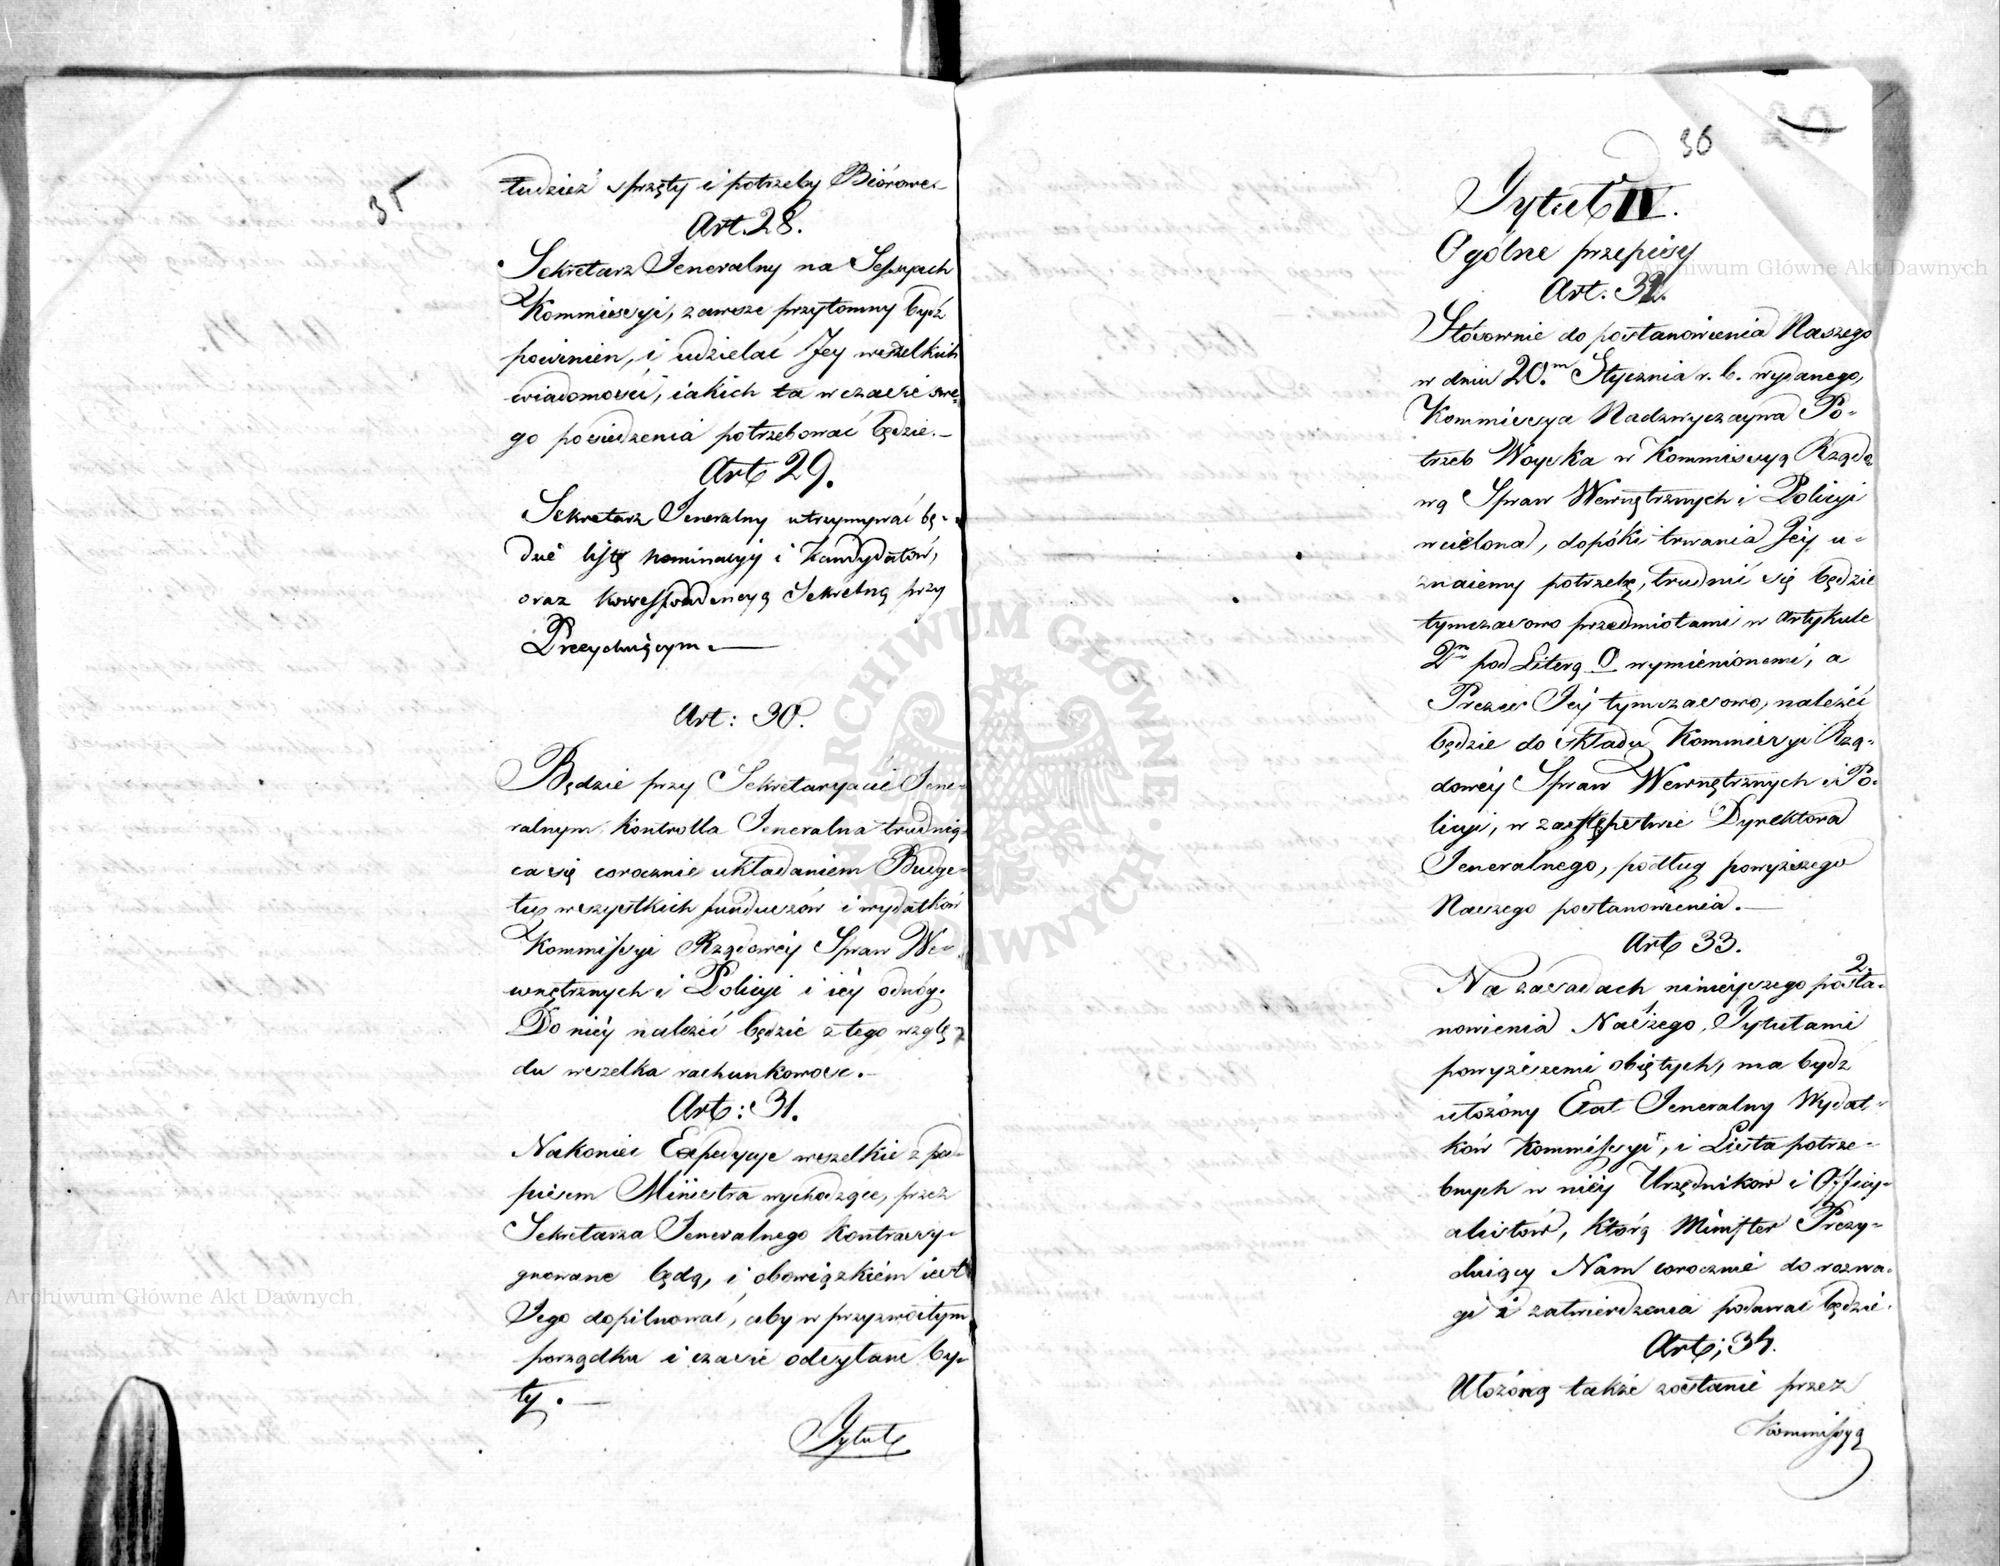 35
tudzież sprzęty i potrzeby Biórowe.
Art. 28.
Sekretarz Jeneralny na Sessyach
Kommissyi, zawsze przytomny bydź
powinien, i udzielać Jey wszelkich
wiadomości, iakich ta w czasie swe-
go posiedzenia potrzebować będzie.—
Art 29.
Sekretarz Jeneralny utrzymywać bę-
dzie listę nominacyi i Kandydatów,
oraz korrespondencyą Sekretną przy
Prezyduiącym.—
Art: 30.
Będzie przy Sekretaryacie Jene-
ralnym Kontrolla Jeneralna trudnią-
ca się corocznie układaniem Budge-
tu wszystkich funduszów i wydatków
Kommissyi Rządowéy Spraw We-
wnętrznych i Policyi i iéy odnóg.
Do niéy należéć będzie z tego wzglę-
du wszelka rachunkowość.—
Art: 31.
Nakoniec Expedycye wszelkie z pod-
pisem Ministra wychodzące, przez
Sekretarza Jeneralnego kontrasy-
gnowane będą, i obowiązkiem iest
Jego dopilnować, aby w przyzwoitym
porządku i czasie odsyłane by-
ły.—
Tytuł
36
Tytuł IV.
Ogólne przepisy
Art: 32.
Stósownie do postanowienia Naszego
w dniu 20.m Stycznia r. b. wydanego,
Kommissya Nadzwyczayna Po-
trzeb Woyska w Kommissyą Rządo-
wą Spraw Wewnętrznych i Policyi
wcielona, dopóki trwania Jéy u-
znaiemy potrzebę, trudnić się będzie
tymczasowo przedmiotami w Artykule
2m pod Literą O wymienionemi, a
Prezes Jéy tymczasowo, należéć
będzie do składu Kommissyi Rzą-
dowéy Spraw Wewnętrznych i Po-
licyi, w zastępstwie Dyrektora
Jeneralnego, podług powyższego
Naszego postanowienia.—
Art 33.
Na zasadach ninieyszego posta-
nowienia Naszego, 2 Tytułami
powyższemi obiętych, ma bydź
ułożony Etat Jeneralny Wydat-
ków Kommissyi, i Lista potrze-
bnych w niéy Urzędników i Officy-
alistów, którą Minister Prezy-
duiący Nam corocznie do rozwa-
gi i zatwierdzenia podawać będzie.
Art: 34.
Ułożoną także zostanie przez
Kommissyą
Archiwum Główne Akt Dawnych
Archiwum Główne Akt Dawnych
ARCHIWUM GŁÓWNE AKT DAWNYCH